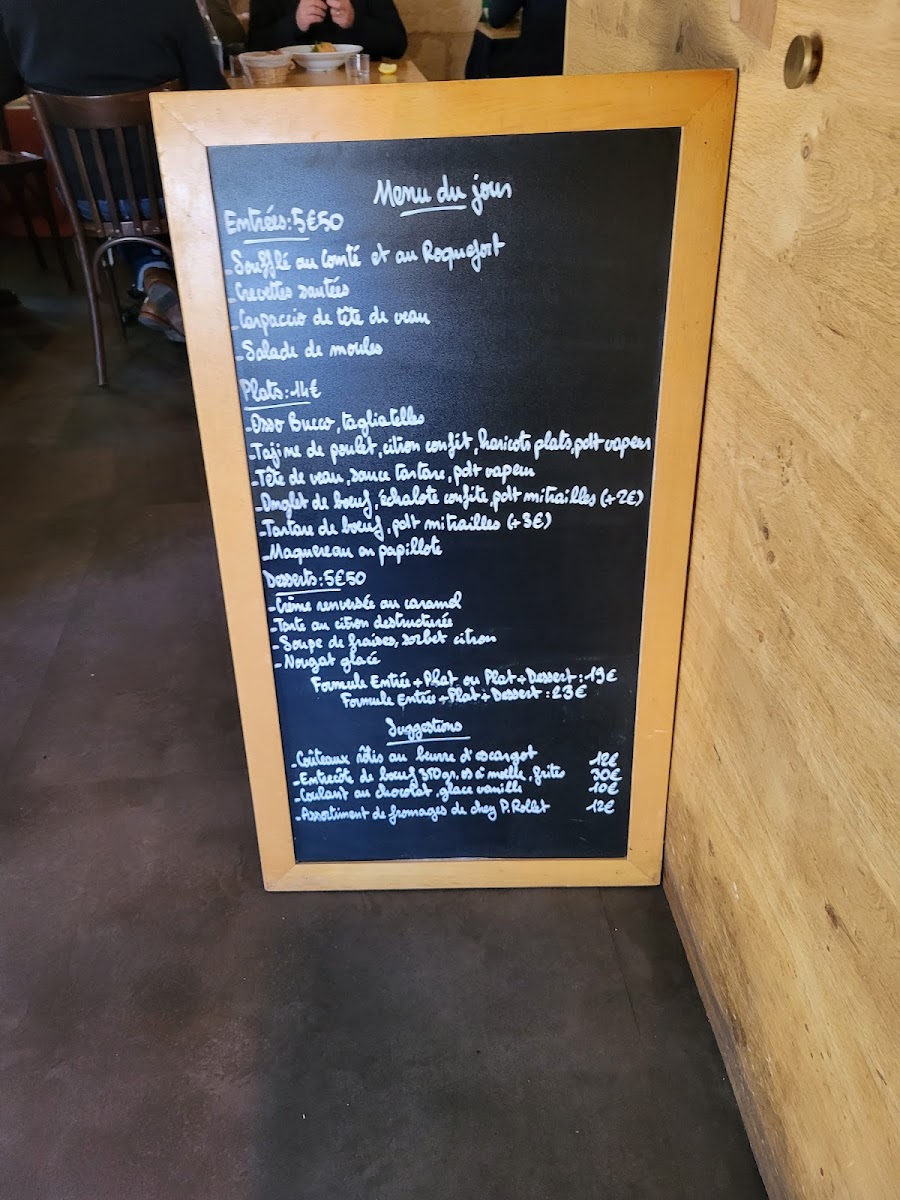 Menu du jour
Entrées: 5€50
-Soufflé au Comté et au Roquefort
-Crevettes sautées
-Carpaccio de tête de veau
-Salade de moules
Plats: 14€
-Osso Bucco, tagliatelles
-Tajine de poulet, citron confit, haricots plats, pdt vapeur
-Tête de veau, sauce tartare, pdt vapeur
-Onglet de boeuf, échalote confite, pdt mitrailles (+2€)
-Tartare de boeuf, pdt mitrailles (+3€)
-Maquereau en papillote
Desserts: 5€50
-Crème renversée au caramel
-Tarte au citron destructurée
-Soupe de fraises, sorbet citron
-Nougat glacé
Formule Entrée + Plat ou Plat + Dessert : 19€
Formule Entrée + Plat + Dessert : 23€
Suggestions
-Coûteaux rôtis au beurre d'escargot 12€
-Entrecôte de boeuf 350gr, os à moelle, frites 30€
-Coulant au chocolat, glace vanille 10€
-Assortiment de fromages de chez P. Rollet 12€